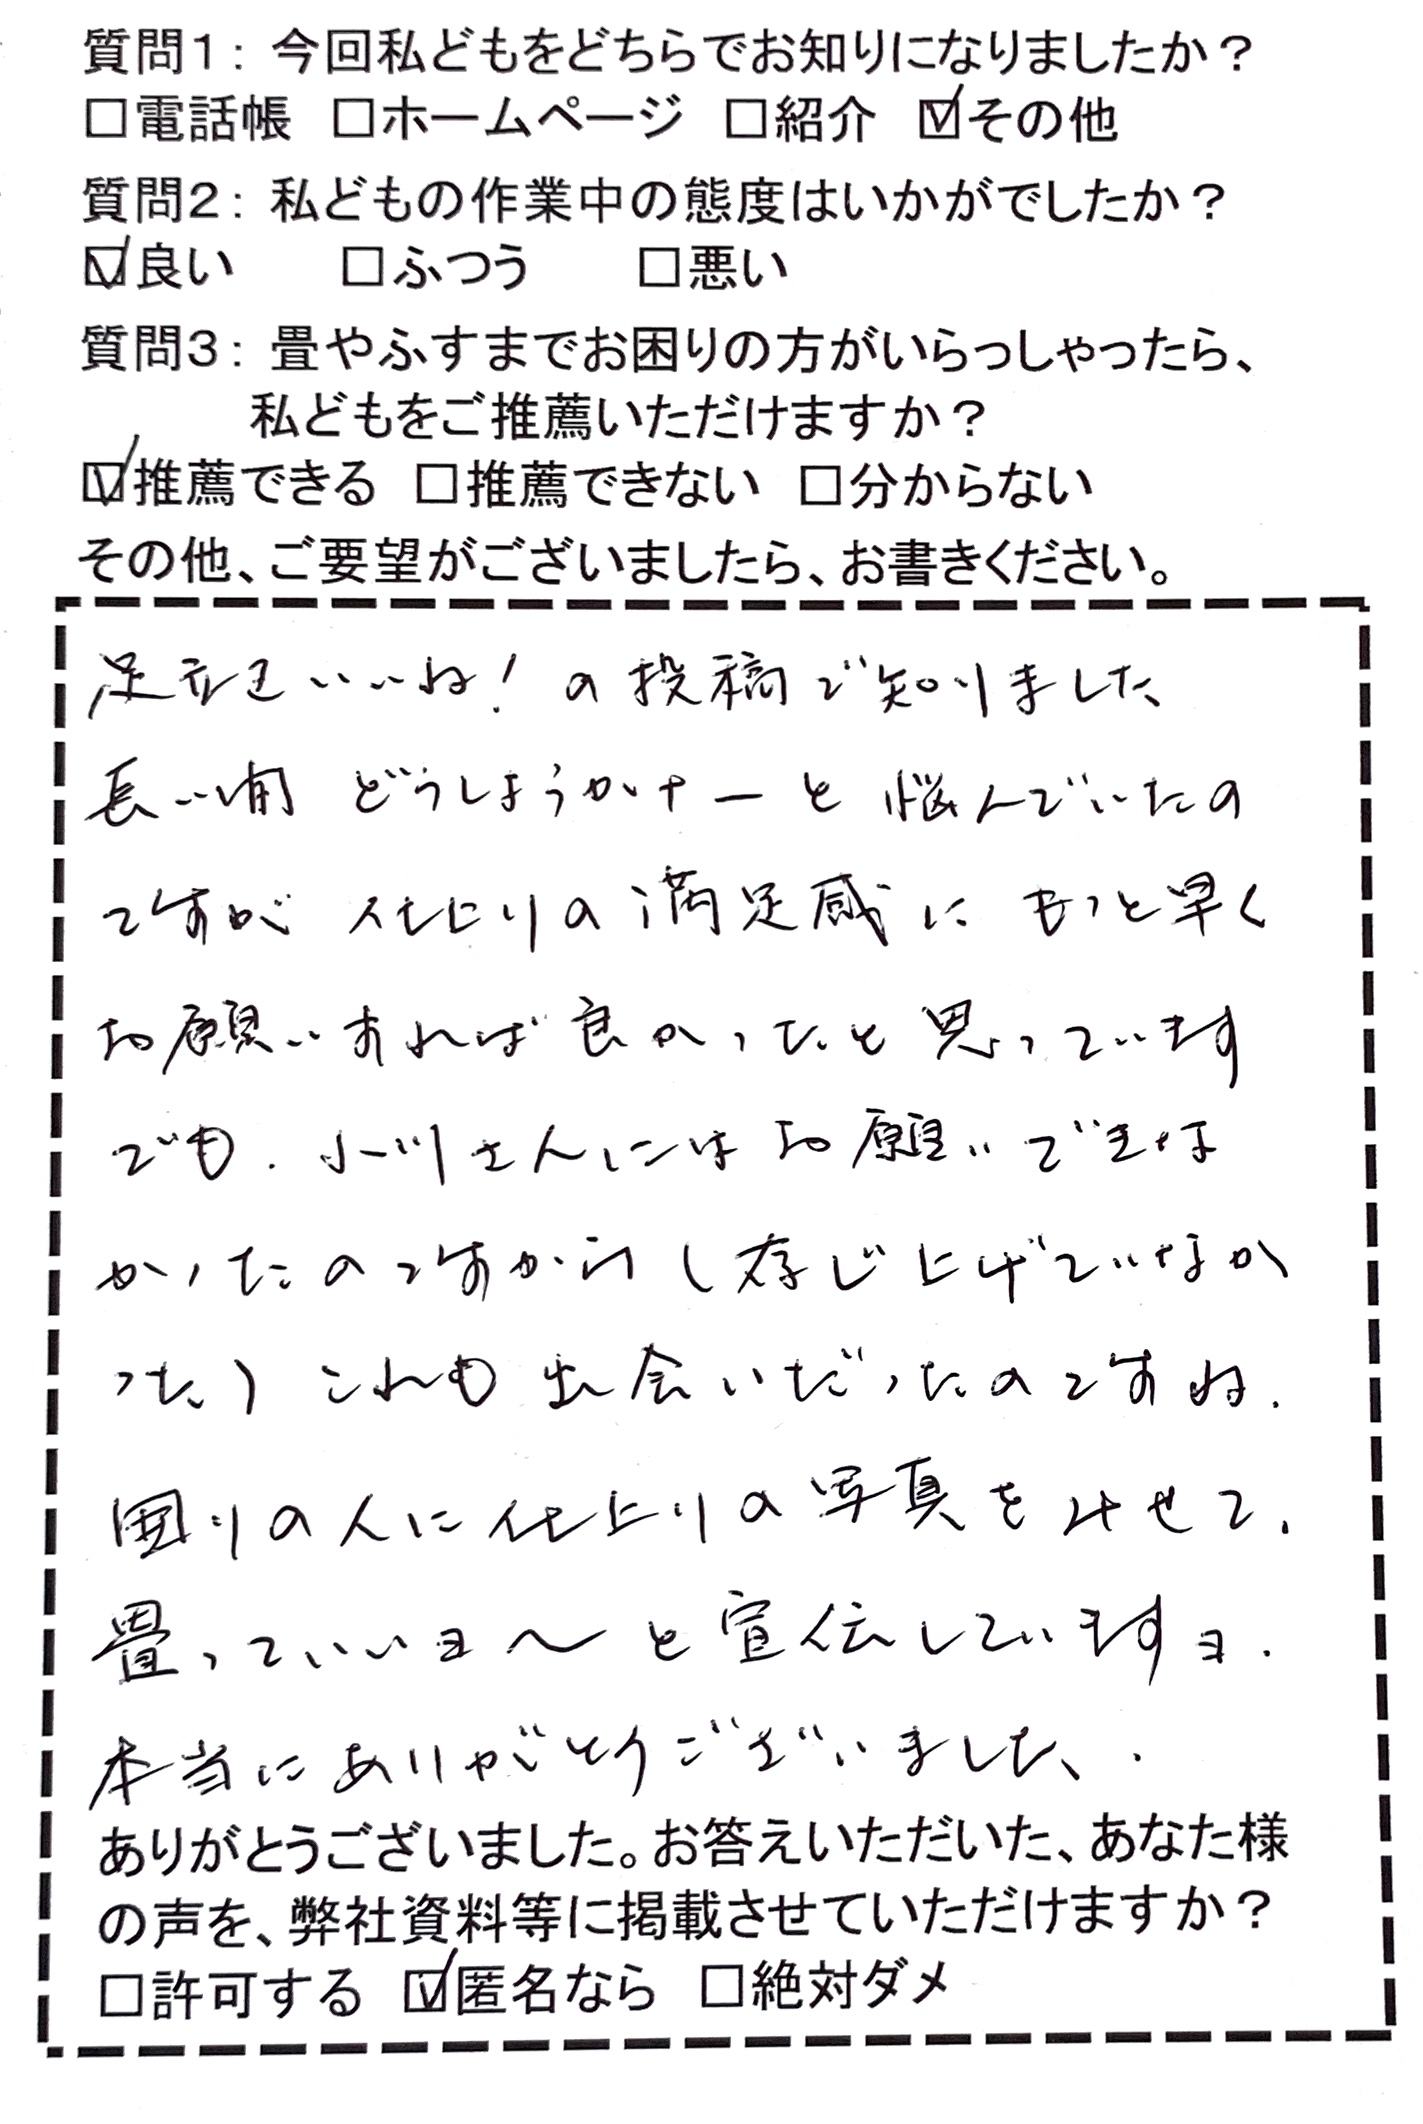 質問1：今回私どもをどちらでお知りになりましたか？
□電話帳 □ホームページ □紹介 ☑その他
質問2：私どもの作業中の態度はいかがでしたか？
☑良い □ふつう □悪い
質問3：畳やふすまでお困りの方がいらっしゃったら、
私どもをご推薦いただけますか？
☑推薦できる □推薦できない □分からない
その他、ご要望がございましたら、お書きください。
足立区いいね！の投稿で知りました
長い間 どうしようかナーと悩んでいたの
ですが 仕上りの満足感に もっと早く
お願いすれば良かったと思っています
でも．小川さんにはお願いできな
かったのですから（存じ上げていなか
った）これも出会いだったのですね．
囲りの人に仕上りの写真をみせて．
畳っていいヨ〜と宣伝していますヨ．
本当にありがとうございました．
ありがとうございました。お答えいただいた、あなた様
の声を、弊社資料等に掲載させていただけますか？
□許可する ☑匿名なら □絶対ダメ